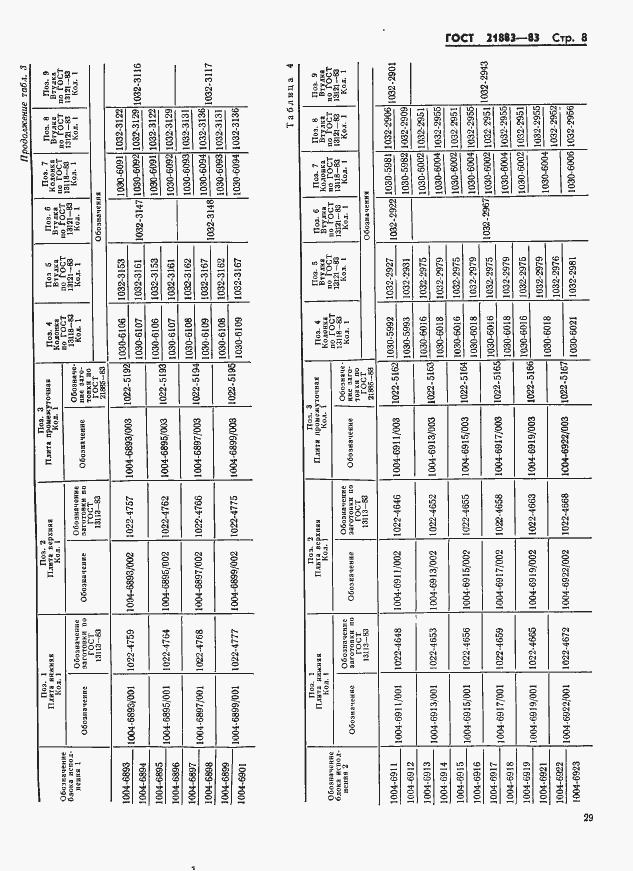 ГОСТ 21883—83 Стр. 8
Продолжение табл. 3
Обозначение блока исполнения 1 | Поз. 1 Плита нижняя Кол. 1 | Поз. 2 Плита верхняя Кол. 1 | Поз. 3 Плита промежуточная Кол. 1 | Поз. 4 Колонка по ГОСТ 13118—83 Кол. 1 | Поз. 5 Втулка по ГОСТ 13121—83 Кол. 1 | Поз. 6 Втулка по ГОСТ 13121—83 Кол. 1 | Поз. 7 Колонка по ГОСТ 13118—83 Кол. 1 | Поз. 8 Втулка по ГОСТ 13121—83 Кол. 1 | Поз. 9 Втулка по ГОСТ 13121—83 Кол. 1
Обозначение | Обозначение заготовки по ГОСТ 13113—83 | Обозначение | Обозначение заготовки по ГОСТ 13113—83 | Обозначение | Обозначение заготовки по ГОСТ 21885—83 | Обозначения
1004-6893 | 1004-6893/001 | 1022-4759 | 1004-6893/002 | 1022-4757 | 1004-6893/003 | 1022-5192 | 1030-6106 | 1032-3153 | 1032-3147 | 1030-6091 | 1032-3122 | 1032-3116
1004-6894 | 1030-6107 | 1032-3161 | 1030-6092 | 1032-3129
1004-6895 | 1004-6895/001 | 1022-4764 | 1004-6895/002 | 1022-4762 | 1004-6895/003 | 1022-5193 | 1030-6106 | 1032-3153 | 1030-6091 | 1032-3122
1004-6896 | 1030-6107 | 1032-3161 | 1030-6092 | 1032-3129
1004-6897 | 1004-6897/001 | 1022-4768 | 1004-6897/002 | 1022-4766 | 1004-6897/003 | 1022-5194 | 1030-6108 | 1032-3162 | 1032-3148 | 1030-6093 | 1032-3131 | 1032-3117
1004-6898 | 1030-6109 | 1032-3167 | 1030-6094 | 1032-3136
1004-6899 | 1004-6899/001 | 1022-4777 | 1004-6899/002 | 1022-4775 | 1004-6899/003 | 1022-5195 | 1030-6108 | 1032-3162 | 1030-6093 | 1032-3131
1004-6901 | 1030-6109 | 1032-3167 | 1030-6094 | 1032-3136
Таблица 4
Обозначение блока исполнения 2 | Поз. 1 Плита нижняя Кол. 1 | Поз. 2 Плита верхняя Кол. 1 | Поз. 3 Плита промежуточная Кол. 1 | Поз. 4 Колонка по ГОСТ 13118—83 Кол. 1 | Поз. 5 Втулка по ГОСТ 13121—83 Кол. 1 | Поз. 6 Втулка по ГОСТ 13121—83 Кол. 1 | Поз. 7 Колонка по ГОСТ 13118—83 Кол. 1 | Поз. 8 Втулка по ГОСТ 13121—83 Кол. 1 | Поз. 9 Втулка по ГОСТ 13121—83 Кол. 1
Обозначение | Обозначение заготовки по ГОСТ 13113—83 | Обозначение | Обозначение заготовки по ГОСТ 13113—83 | Обозначение | Обозначение заготовки по ГОСТ 21885—83 | Обозначения
1004-6911 | 1004-6911/001 | 1022-4648 | 1004-6911/002 | 1022-4646 | 1004-6911/003 | 1022-5162 | 1030-5992 | 1032-2927 | 1032-2922 | 1030-5981 | 1032-2906 | 1032-2901
1004-6912 | 1030-5993 | 1032-2931 | 1030-5982 | 1032-2909
1004-6913 | 1004-6913/001 | 1022-4653 | 1004-6913/002 | 1022-4652 | 1004-6913/003 | 1022-5163 | 1030-6016 | 1032-2975 | 1032-2967 | 1030-6002 | 1032-2951 | 1032-2943
1004-6914 | 1030-6018 | 1032-2979 | 1030-6004 | 1032-2955
1004-6915 | 1004-6915/001 | 1022-4656 | 1004-6915/002 | 1022-4655 | 1004-6915/003 | 1022-5164 | 1030-6016 | 1032-2975 | 1030-6002 | 1032-2951
1004-6916 | 1030-6018 | 1032-2979 | 1030-6004 | 1032-2955
1004-6917 | 1004-6917/001 | 1022-4659 | 1004-6917/002 | 1022-4658 | 1004-6917/003 | 1022-5165 | 1030-6016 | 1032-2975 | 1030-6002 | 1032-2951
1004-6918 | 1030-6018 | 1032-2979 | 1030-6004 | 1032-2955
1004-6919 | 1004-6919/001 | 1022-4665 | 1004-6919/002 | 1022-4663 | 1004-6919/003 | 1022-5166 | 1030-6016 | 1032-2975 | 1030-6002 | 1032-2951
1004-6921 | 1030-6018 | 1032-2979 | 1030-6004 | 1032-2955
1004-6922 | 1004-6922/001 | 1022-4672 | 1004-6922/002 | 1022-4668 | 1004-6922/003 | 1022-5167 | 1032-2976 | 1032-2952
1004-6923 | 1030-6021 | 1032-2981 | 1030-6006 | 1032-2956
29